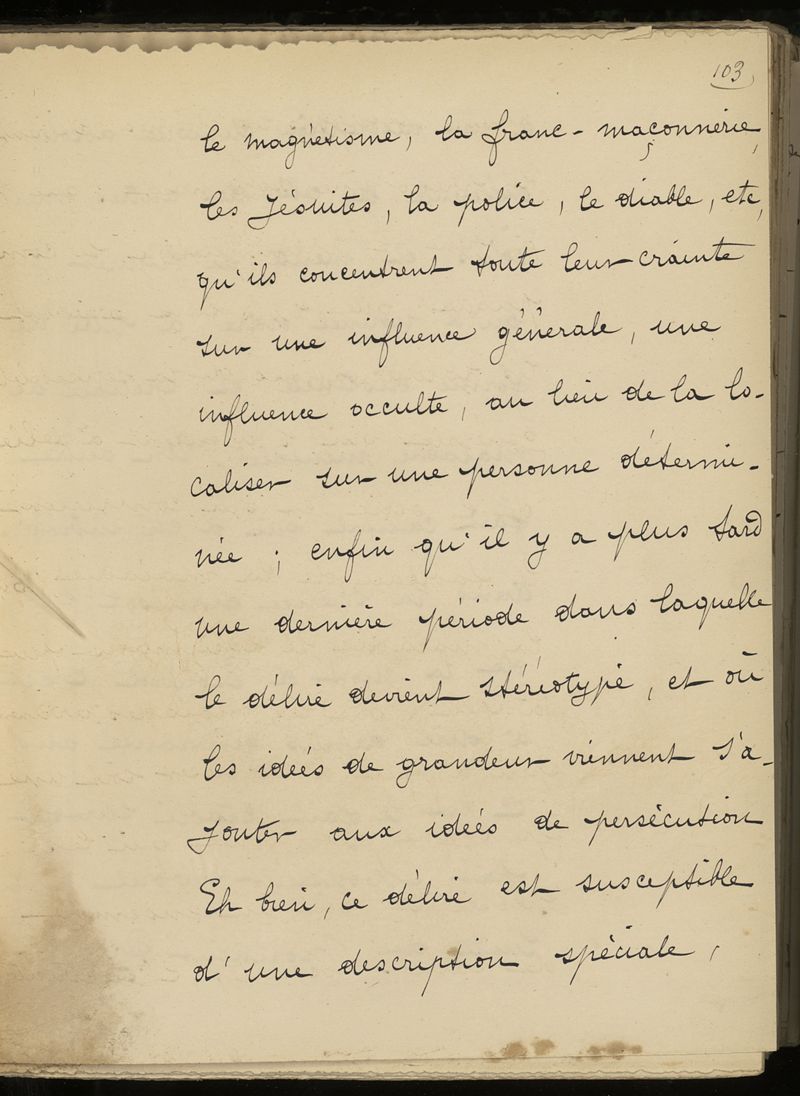 103
le magnétisme, la franc-maçonnerie,
les Jésuites, la police, le diable, etc,
qu'ils concentrent toute leur crainte
sur une influence générale, une
influence occulte, au lieu de la lo-
caliser sur une personne détermi-
née ; enfin qu'il y a plus tard
une dernière période dans laquelle
le délire devient stéréotypé, et où
les idées de grandeur viennent s'a-
jouter aux idées de persécution
Eh bien, ce délire est susceptible
d'une description spéciale,